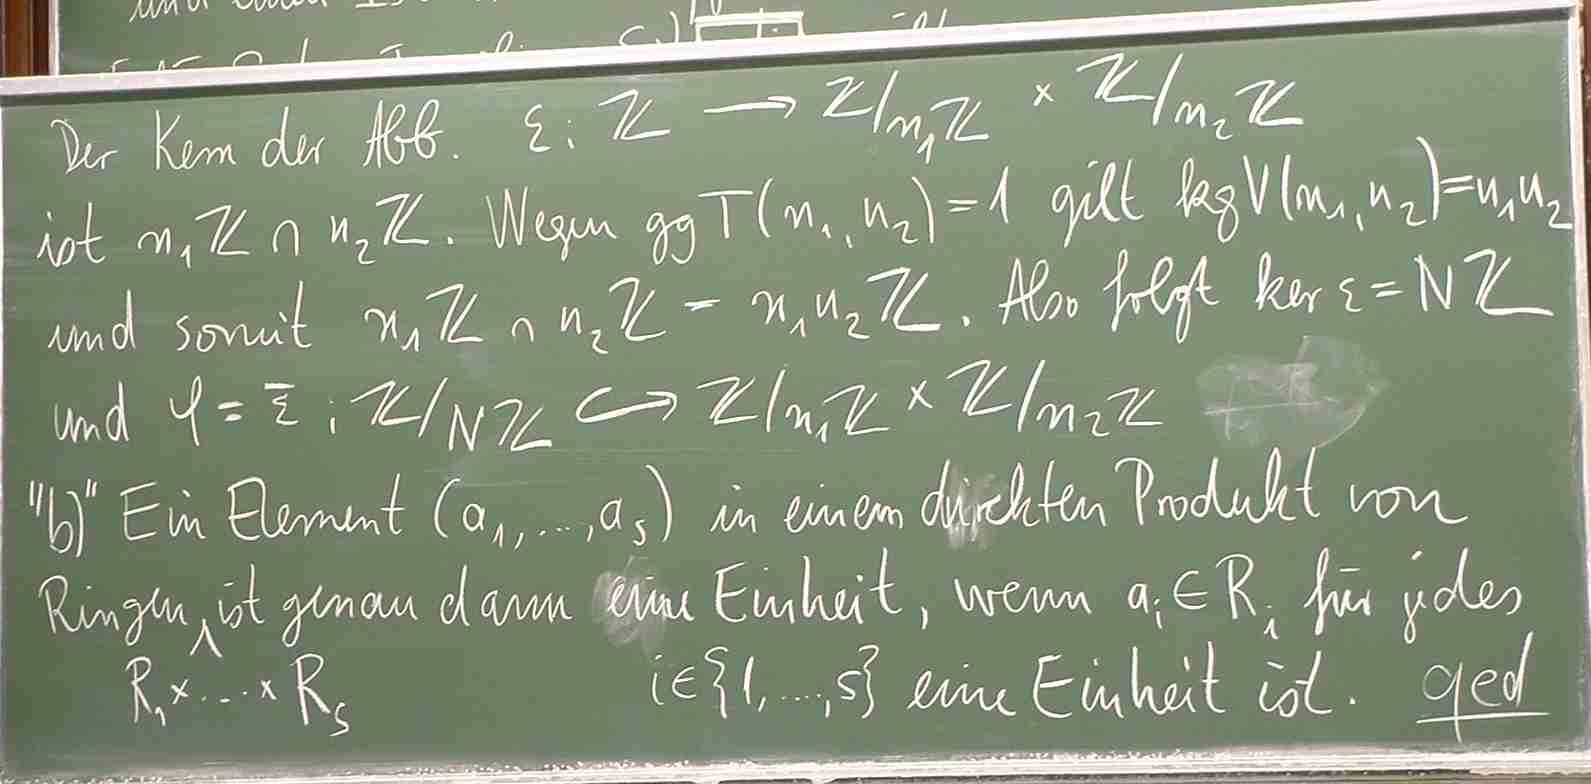 und
Der Kern der Abb. ε: ℤ → ℤ/n₁ℤ × ℤ/n₂ℤ
ist n₁ℤ ∩ n₂ℤ. Wegen ggT(n₁, n₂) = 1 gilt kgV(n₁, n₂) = n₁n₂
und somit n₁ℤ ∩ n₂ℤ = n₁n₂ℤ. Also folgt ker ε = Nℤ
und φ = ε̅ : ℤ/Nℤ ↪ ℤ/n₁ℤ × ℤ/n₂ℤ
"b)" Ein Element (a₁, ..., aₛ) in einem direkten Produkt von
Ringen ∧ ist genau dann eine Einheit, wenn aᵢ ∈ Rᵢ für jedes
R₁ × ... × Rₛ i ∈ {1, ..., s} eine Einheit ist. qed